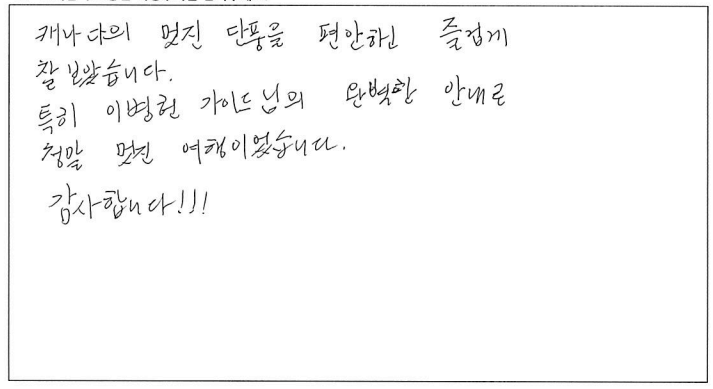 캐나다의 멋진 단풍을 편안하고 즐겁게
잘 보았습니다.
특히 이병헌 가이드님의 완벽한 안내로
정말 멋진 여행이었습니다.
감사합니다!!!